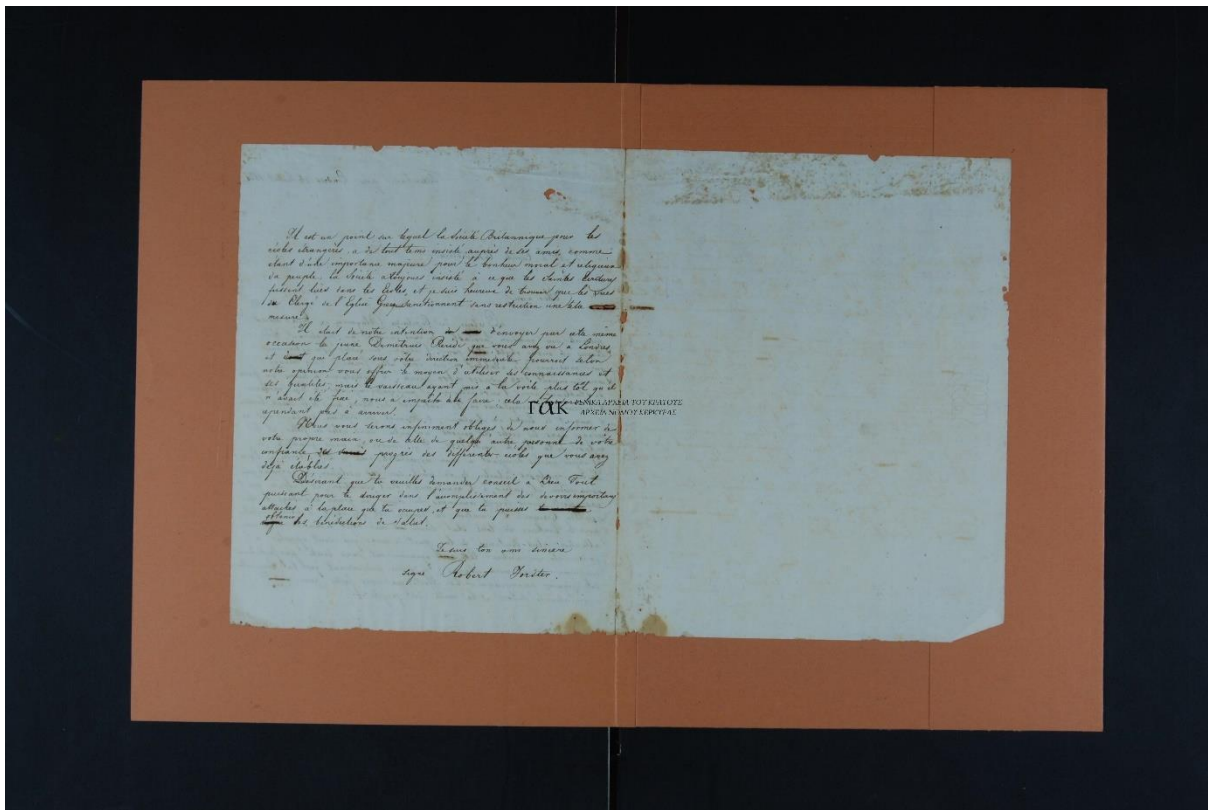 Il est un point sur lequel la Société Britannique pour les
écoles étrangères a de tout tems insisté auprès de ses amis comme
étant d'une importance majeure pour le bonheur moral et religieux
du peuple. La Société a toujours insisté à ce que les Saintes Ecritures
fussent lues dans les Ecoles, et je suis heureux de trouver que les
du Clergé de l'Eglise Grecque sanctionnent sans restriction une telle
mesure.
Il était de notre intention d'envoyer par cette même
occasion le jeune Demetrius que vous avez vu à Londres
et qui placé sous votre direction immédiate pourrait selon
notre opinion vous offrir le moyen d'utiliser ses connaissances et
ses qualités mais le vaisseau ayant mis à la voile plus tôt qu'il
n'avait été fixé, nous a empêché de le faire, cela
cependant pas à arriver.
Nous vous serons infiniment obligés de nous informer de
votre propre main, ou de celle de quelqu'autre personne de votre
confiance, progrès des différentes écoles que vous avez
déjà établies.
Désirant que tu veuilles demander conseil à Dieu Tout
puissant pour te diriger dans l'accomplissement des devoirs importans
attachés à la place que tu occupes, et que tu puisses
obtenir les bénédictions de
Je suis ton ami sincère
signé Robert Forster.
γακ ΓΕΝΙΚΑ ΑΡΧΕΙΑ ΤΟΥ ΚΡΑΤΟΥΣ
ΑΡΧΕΙΑ ΝΟΜΟΥ ΚΕΡΚΥΡΑΣ